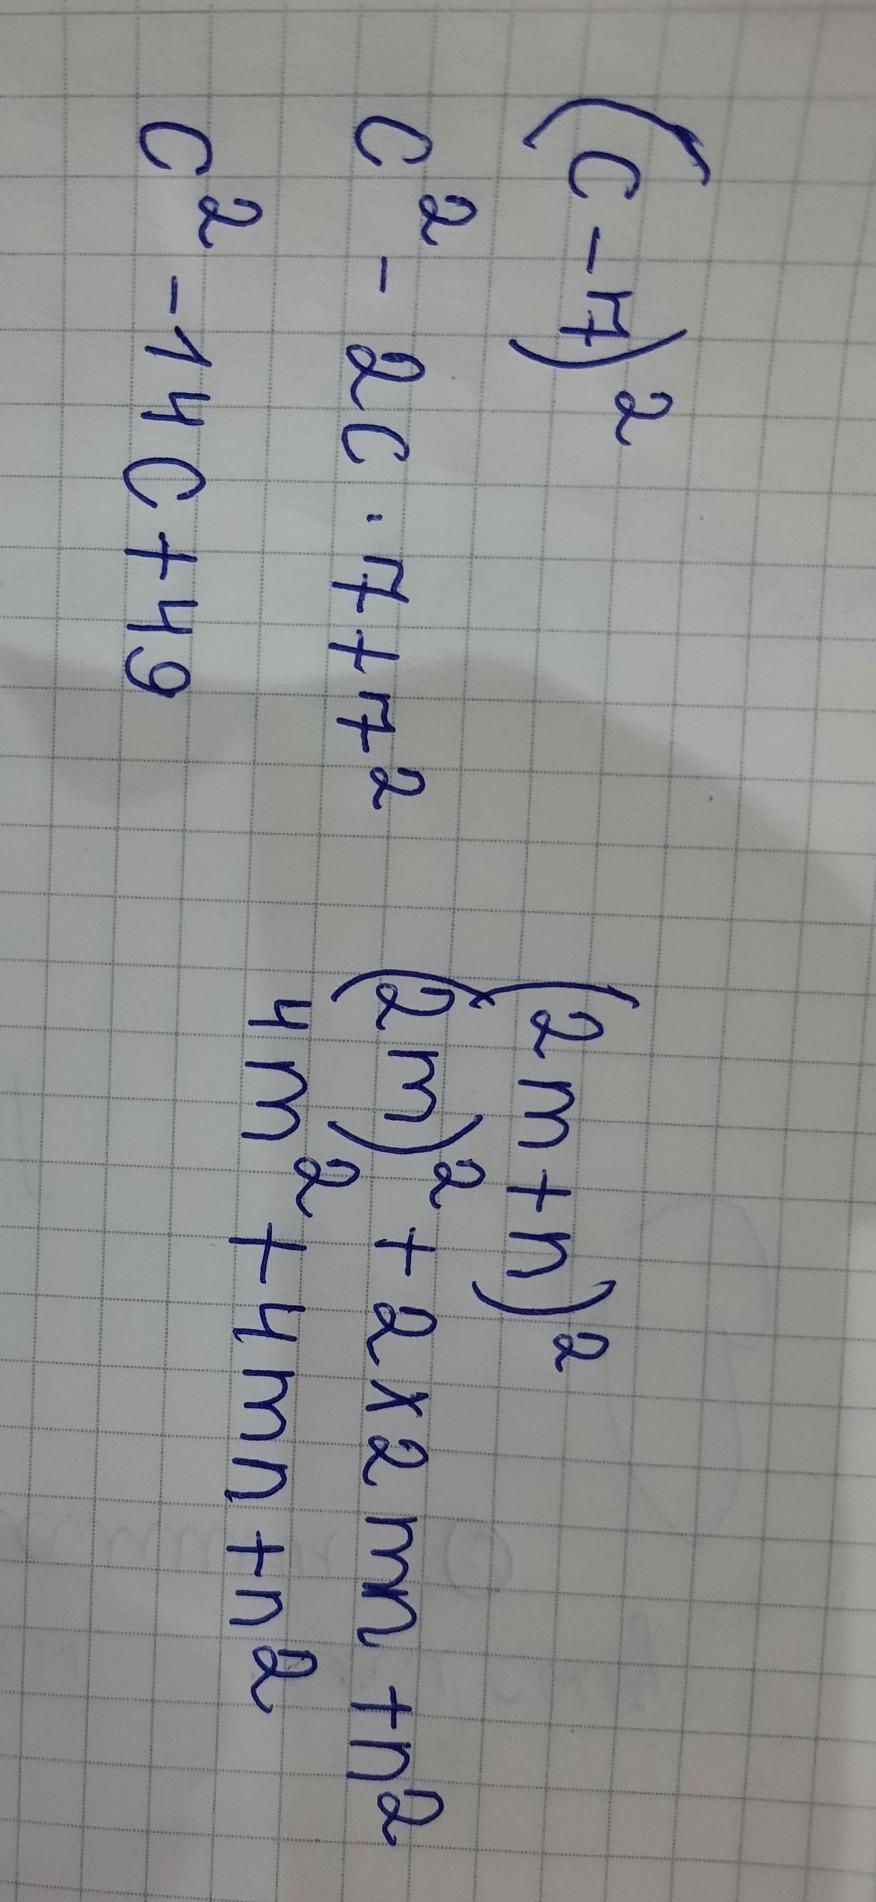 (c-7)²
c²- 2c·7+7²
c²-14c+49
(2m+n)²
(2m)²+2×2mn+n²
4m²+4mn+n²